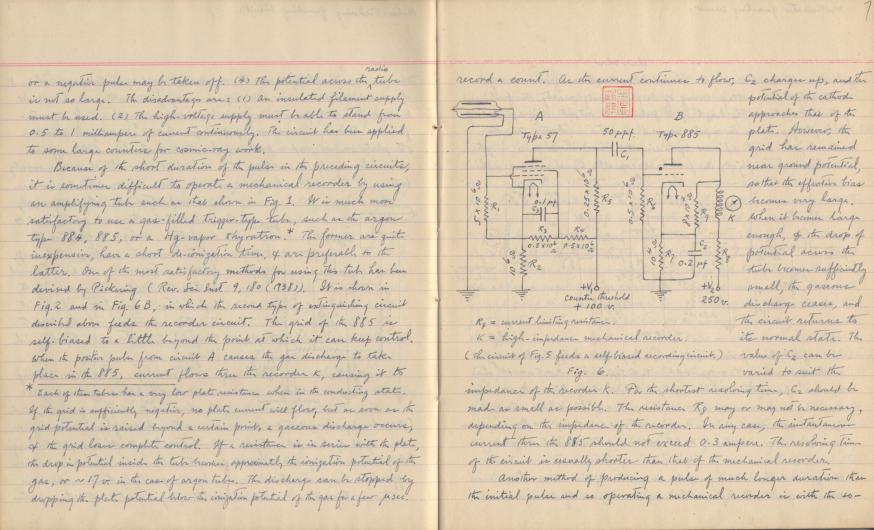 or a negative pulse may be taken off. (4) The potential across the radio tube
is not so large. The disadvantages are: (1) An insulated filament supply
must be used. (2) The high-voltage supply must be able to stand from
0.5 to 1 milliampere of current continuously. The circuit has been applied
to some large counters for cosmic-ray work.
Because of the short duration of the pulse in the preceding circuits,
it is sometimes difficult to operate a mechanical recorder by using
an amplifying tube such as that shown in Fig. 1. It is much more
satisfactory to use a gas-filled trigger-type tube, such as the argon
type 884, 885, or a Hg-vapor thyratron.* The former are quite
inexpensive, have a short deionization time, & are preferable to the
latter. One of the most satisfactory methods for using this tube has been
devised by Pickering (Rev. Sci. Inst. 9, 180 (1938)). It is shown in
Fig. 2 and in Fig. 6B, in which the second type of extinguishing circuit
described above feeds the recorder circuit. The grid of the 885 is
self-biased to a little beyond the point at which it can keep control.
When the positive pulse from circuit A causes the gas discharge to take
place in the 885, current flows thru the recorder K, causing it to
* Each of these tubes has a very low plate resistance when in the conducting state.
If the grid is sufficiently negative, no plate current will flow, but as soon as the
grid potential is raised beyond a certain point, a gaseous discharge occurs,
& the grid loses complete control. If a resistance is in series with the plate,
the drop in potential inside the tube becomes approximately the ionization potential of the
gas, or ~17 v. in the case of argon tubes. The discharge can be stopped by
dropping the plate potential below the ionization potential of the gas for a few μsec.
7
record a count. As the current continues to flow, C2 charges up, and the
potential of the cathode
approaches that of the
plate. However, the
grid has remained
near ground potential,
so that the effective bias
becomes very large.
When it becomes large
enough, & the drop of
potential across the
tube becomes sufficiently
small, the gaseous
discharge ceases, and
the circuit returns to
its normal state. The
value of C2 can be
varied to suit the
A
Type 57
50 μμf
C1
B
Type 885
R2
R5
R6
R7
C2
K
+V1
counter threshold
+ 100 v.
+V2
250 v.
R8 = current limiting resistance.
K = high-impedance mechanical recorder.
(The circuit of Fig. 5 feeds a self biased recording circuit)
Fig. 6.
impedance of the recorder K. For the shortest resolving time, C2 should be
made as small as possible. The resistance R8 may or may not be necessary,
depending on the impedance of the recorder. In any case, the instantaneous
current thru the 885 should not exceed 0.3 ampere. The resolving time
of the circuit is usually shorter than that of the mechanical recorder.
Another method of producing a pulse of much longer duration than
the initial pulse and so operating a mechanical recorder is with the so-